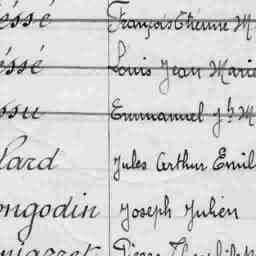 éssé François Etienne M
éssé Louis Jean Marie
ssu Emmanuel Jh M
lard Jules Arthur Emil
ongodin Joseph Julien
Pierre